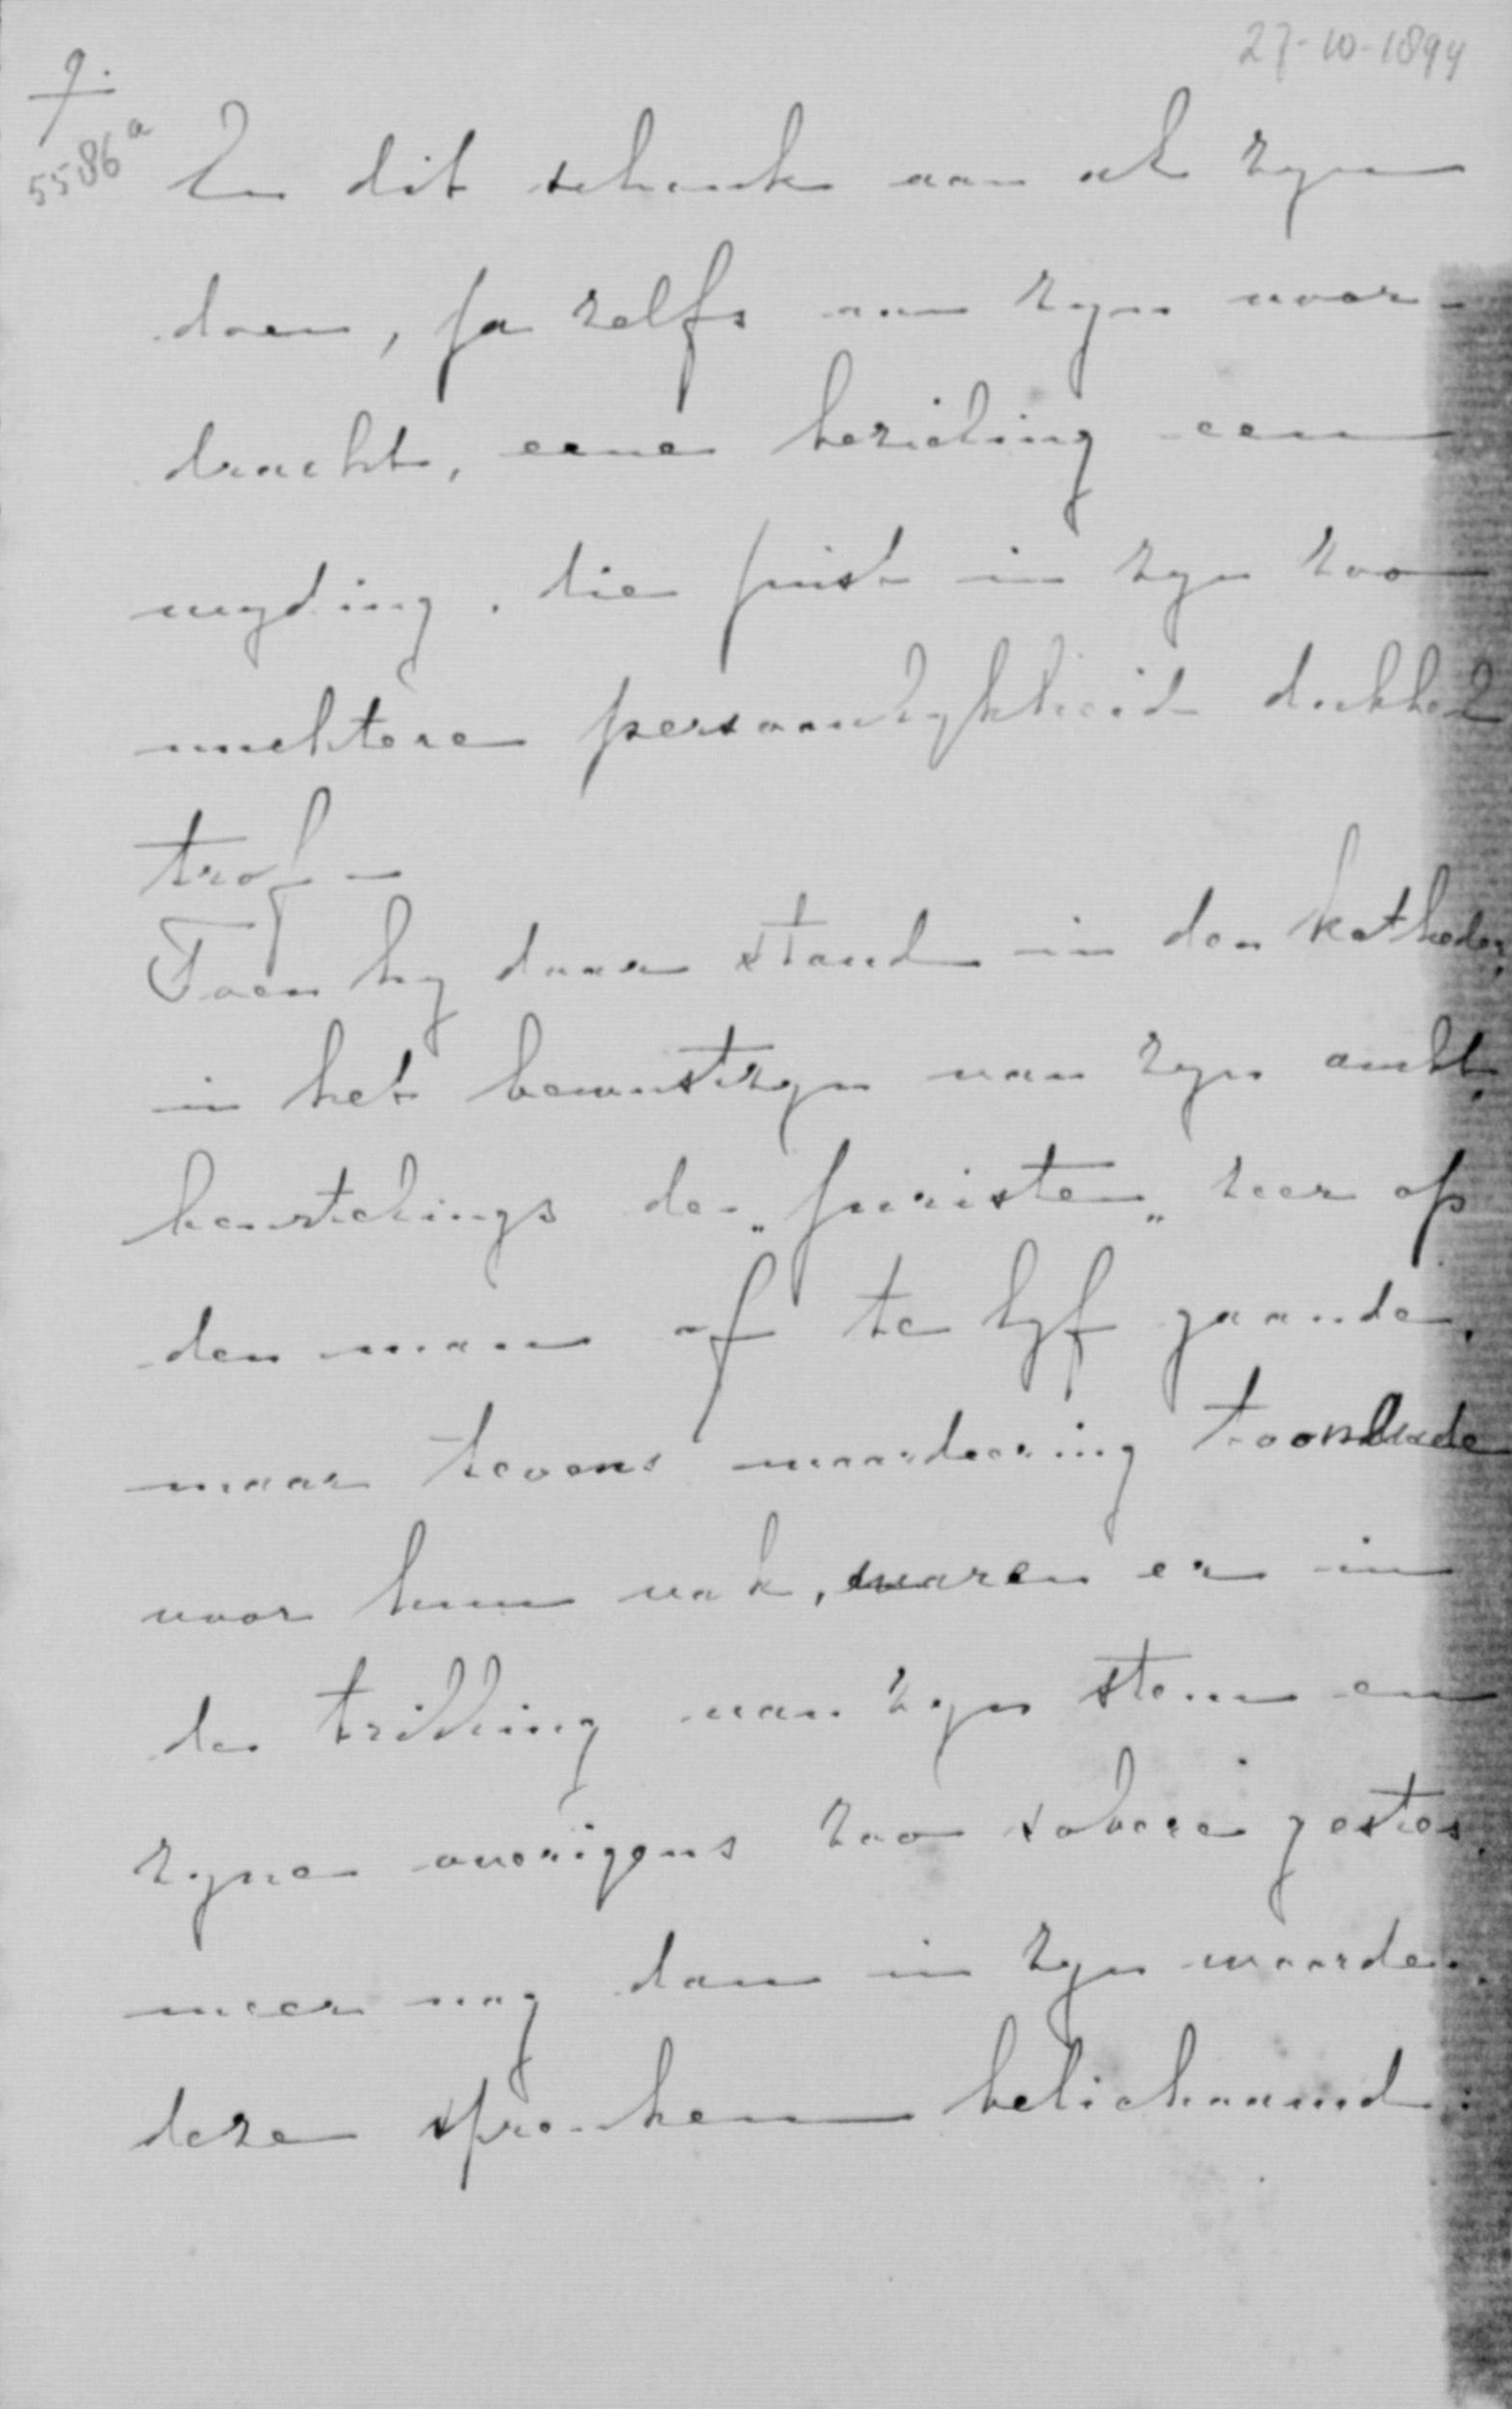 27-10-1894
9.
5586a
En dit schonk aan al zyn
doen, ja zelfs aan zyn voor-
dracht, eene bezieling een
wyding, die juist in zyn zoo
nuchtere persoonlykheid dubbel
trof —
Toen hy daar stond in den katheder,
in het bewustzyn van zyn ambt,
de „juristen„ zeer op
den man af te lyf gaande,
maar tevens waardeering toonende
voor hun vak, waren er in
de trilling van zyn stem en
zyne overigens zoo sobere gestes,
meer nog dan in zyn woorden,
deze spreuken belichaamd: